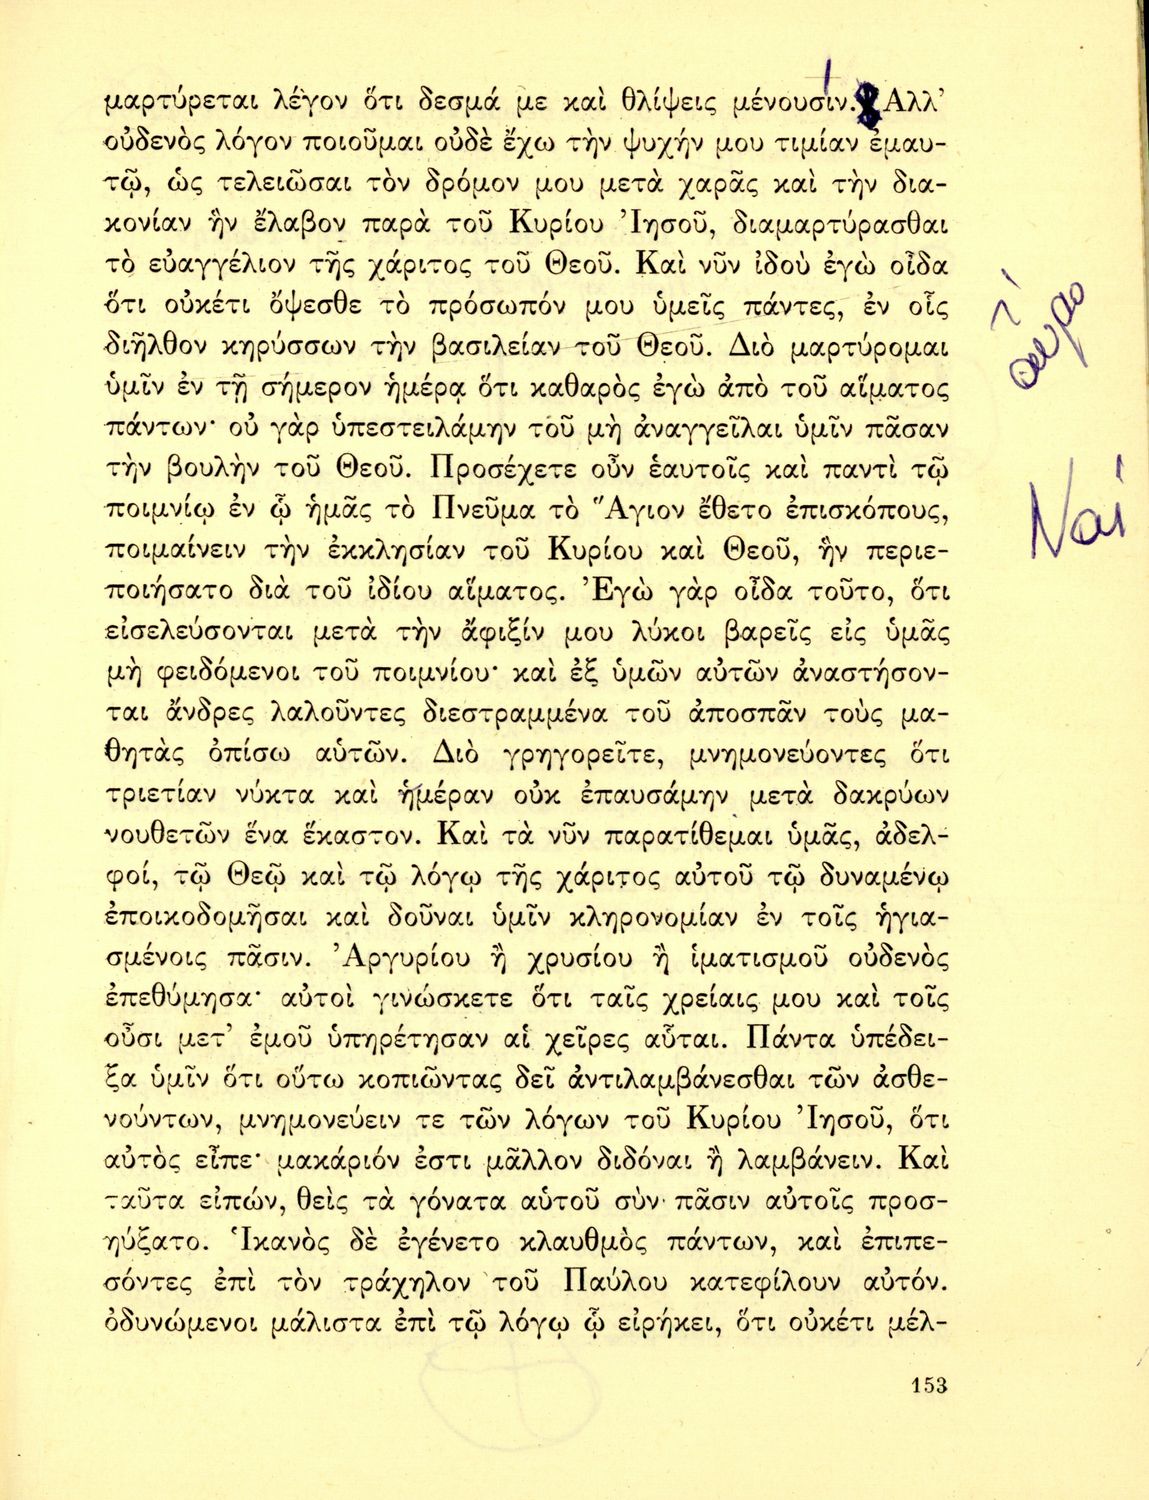 μαρτύρεται λέγον ὅτι δεσμά με καὶ θλίψεις μένουσιν. Ἀλλ’
οὐδενὸς λόγον ποιοῦμαι οὐδὲ ἔχω τὴν ψυχήν μου τιμίαν ἐμαυ-
τῷ, ὡς τελειῶσαι τὸν δρόμον μου μετὰ χαρᾶς καὶ τὴν δια-
κονίαν ἣν ἔλαβον παρὰ τοῦ Κυρίου Ἰησοῦ, διαμαρτύρασθαι
τὸ εὐαγγέλιον τῆς χάριτος τοῦ Θεοῦ. Καὶ νῦν ἰδοὺ ἐγὼ οἶδα
ὅτι οὐκέτι ὄψεσθε τὸ πρόσωπόν μου ὑμεῖς πάντες, ἐν οἷς
διῆλθον κηρύσσων τὴν βασιλείαν τοῦ Θεοῦ. Διὸ μαρτύρομαι
ὑμῖν ἐν τῇ σήμερον ἡμέρᾳ ὅτι καθαρὸς ἐγὼ ἀπὸ τοῦ αἵματος
πάντων· οὐ γὰρ ὑπεστειλάμην τοῦ μὴ ἀναγγεῖλαι ὑμῖν πᾶσαν
τὴν βουλὴν τοῦ Θεοῦ. Προσέχετε οὖν ἑαυτοῖς καὶ παντὶ τῷ
ποιμνίῳ ἐν ᾧ ἡμᾶς τὸ Πνεῦμα τὸ Ἅγιον ἔθετο ἐπισκόπους,
ποιμαίνειν τὴν ἐκκλησίαν τοῦ Κυρίου καὶ Θεοῦ, ἣν περιε-
ποιήσατο διὰ τοῦ ἰδίου αἵματος. Ἐγὼ γὰρ οἶδα τοῦτο, ὅτι
εἰσελεύσονται μετὰ τὴν ἄφιξίν μου λύκοι βαρεῖς εἰς ὑμᾶς
μὴ φειδόμενοι τοῦ ποιμνίου· καὶ ἐξ ὑμῶν αὐτῶν ἀναστήσον-
ται ἄνδρες λαλοῦντες διεστραμμένα τοῦ ἀποσπᾶν τοὺς μα-
θητὰς ὀπίσω αὑτῶν. Διὸ γρηγορεῖτε, μνημονεύοντες ὅτι
τριετίαν νύκτα καὶ ἡμέραν οὐκ ἐπαυσάμην μετὰ δακρύων
νουθετῶν ἕνα ἕκαστον. Καὶ τὰ νῦν παρατίθεμαι ὑμᾶς, ἀδελ-
φοί, τῷ Θεῷ καὶ τῷ λόγῳ τῆς χάριτος αὐτοῦ τῷ δυναμένῳ
ἐποικοδομῆσαι καὶ δοῦναι ὑμῖν κληρονομίαν ἐν τοῖς ἡγια-
σμένοις πᾶσιν. Ἀργυρίου ἢ χρυσίου ἢ ἱματισμοῦ οὐδενὸς
ἐπεθύμησα· αὐτοὶ γινώσκετε ὅτι ταῖς χρείαις μου καὶ τοῖς
οὖσι μετ’ ἐμοῦ ὑπηρέτησαν αἱ χεῖρες αὗται. Πάντα ὑπέδει-
ξα ὑμῖν ὅτι οὕτω κοπιῶντας δεῖ ἀντιλαμβάνεσθαι τῶν ἀσθε-
νούντων, μνημονεύειν τε τῶν λόγων τοῦ Κυρίου Ἰησοῦ, ὅτι
αὐτὸς εἶπε· μακάριόν ἐστι μᾶλλον διδόναι ἢ λαμβάνειν. Καὶ
ταῦτα εἰπών, θεὶς τὰ γόνατα αὑτοῦ σὺν πᾶσιν αὐτοῖς προσ-
ηύξατο. Ἱκανὸς δὲ ἐγένετο κλαυθμὸς πάντων, καὶ ἐπιπε-
σόντες ἐπὶ τὸν τράχηλον τοῦ Παύλου κατεφίλουν αὐτόν.
ὀδυνώμενοι μάλιστα ἐπὶ τῷ λόγῳ ᾧ εἰρήκει, ὅτι οὐκέτι μέλ-
153
Ναί